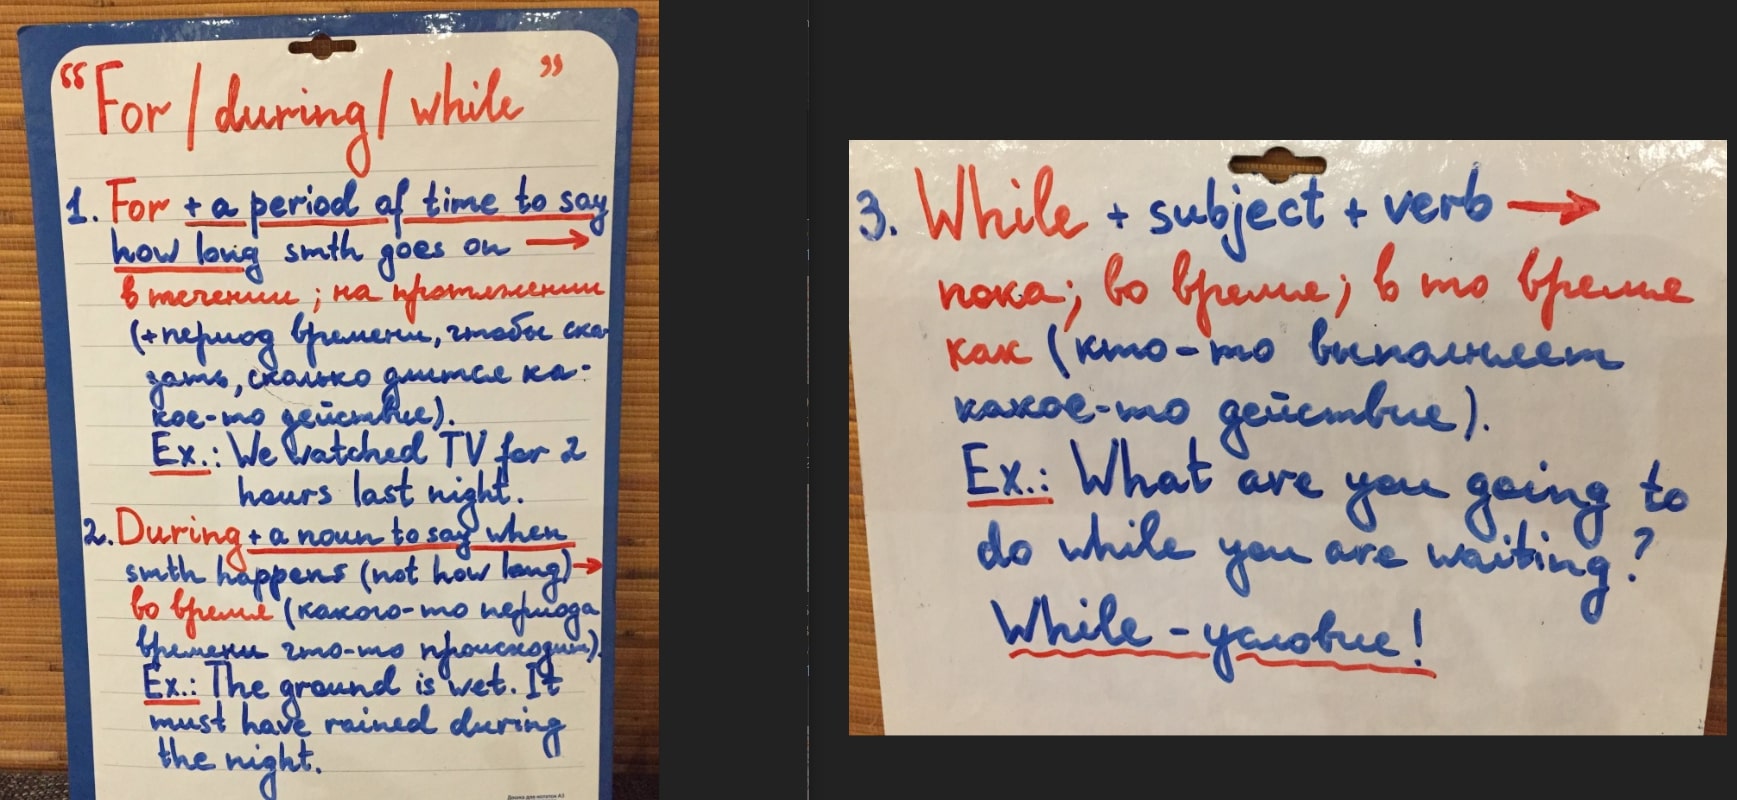 “For / during / while”
1. For + a period of time to say
how long smth goes on →
в течении ; на протяжении
(+период времени, чтобы ска-
зать, сколько длится ка-
кое-то действие).
Ex.: We watched TV for 2
hours last night.
2. During + a noun to say when
smth happens (not how long) →
во время (какого-то периода
времени что-то происходит).
Ex.: The ground is wet. It
must have rained during
the night.
Доска для заметок А3
3. While + subject + verb →
пока; во время; в то время
как (кто-то выполняет
какое-то действие).
Ex.: What are you going to
do while you are waiting?
While - условие!